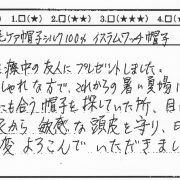 1.□(★) 2.□(★★) 3.□(★★★) 4.□(★
帽子シルク100% イスラムワッチ帽子
療中の友人にプレゼントしました。
しゃれな方で、これからの暑い夏場に
にも合う帽子を探していた所、目に
から、敏感な頭皮を守り、日
変よろこんでいただきまし